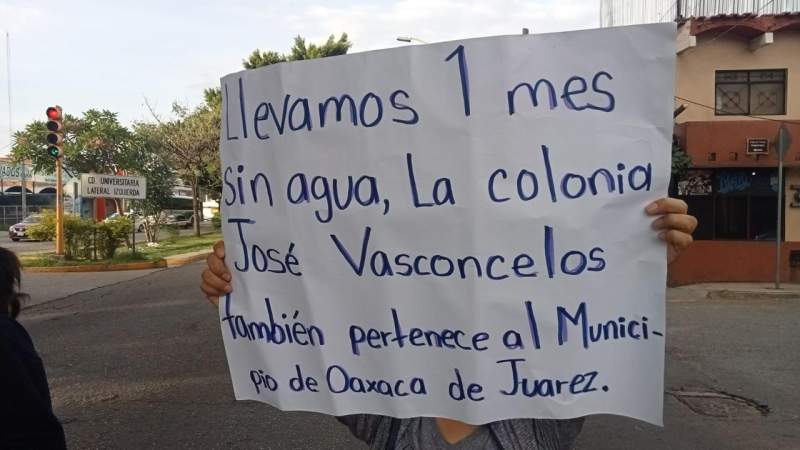 Llevamos 1 mes
sin agua, La colonia
José Vasconcelos
también pertenece al Munici-
pio de Oaxaca de Juarez.
CD. UNIVERSITARIA
LATERAL IZQUIERDA